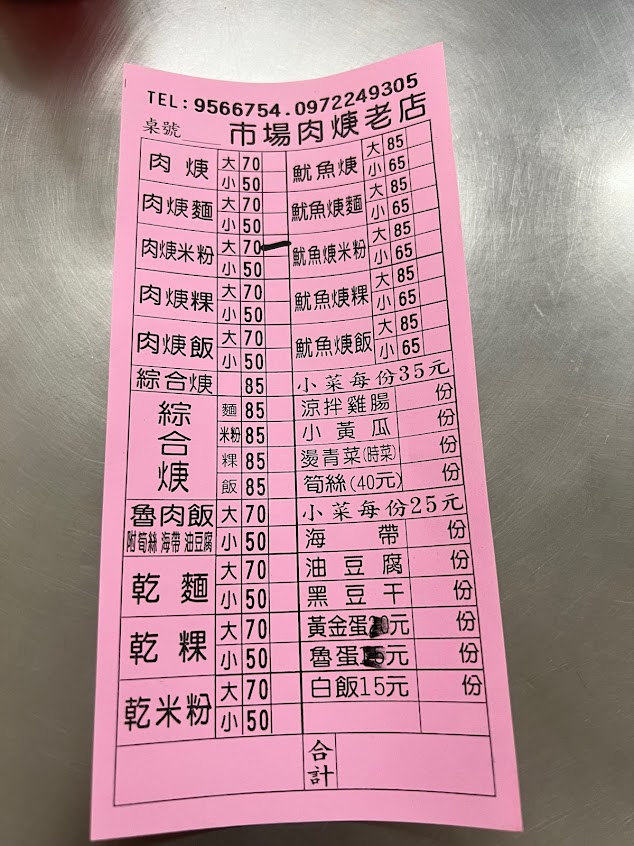 TEL: 9566754.0972249305
桌號 市場肉焿老店
肉焿 大 70 魷魚焿 大 85
小 50 小 65
肉焿麵 大 70 魷魚焿麵 大 85
小 50 小 65
肉焿米粉 大 70 魷魚焿米粉 大 85
小 50 小 65
肉焿粿 大 70 魷魚焿粿 大 85
小 50 小 65
肉焿飯 大 70 魷魚焿飯 大 85
小 50 小 65
綜合焿 85 小菜每份35元
綜合焿 麵 85 涼拌雞腸 份
米粉 85 小黃瓜 份
粿 85 燙青菜(時菜) 份
飯 85 筍絲(40元) 份
魯肉飯 大 70 小菜每份25元
附筍絲 海帶 油豆腐 小 50 海帶 份
乾麵 大 70 油豆腐 份
小 50 黑豆干 份
乾粿 大 70 黃金蛋 元 份
小 50 魯蛋 元 份
乾米粉 大 70 白飯15元 份
小 50
合計